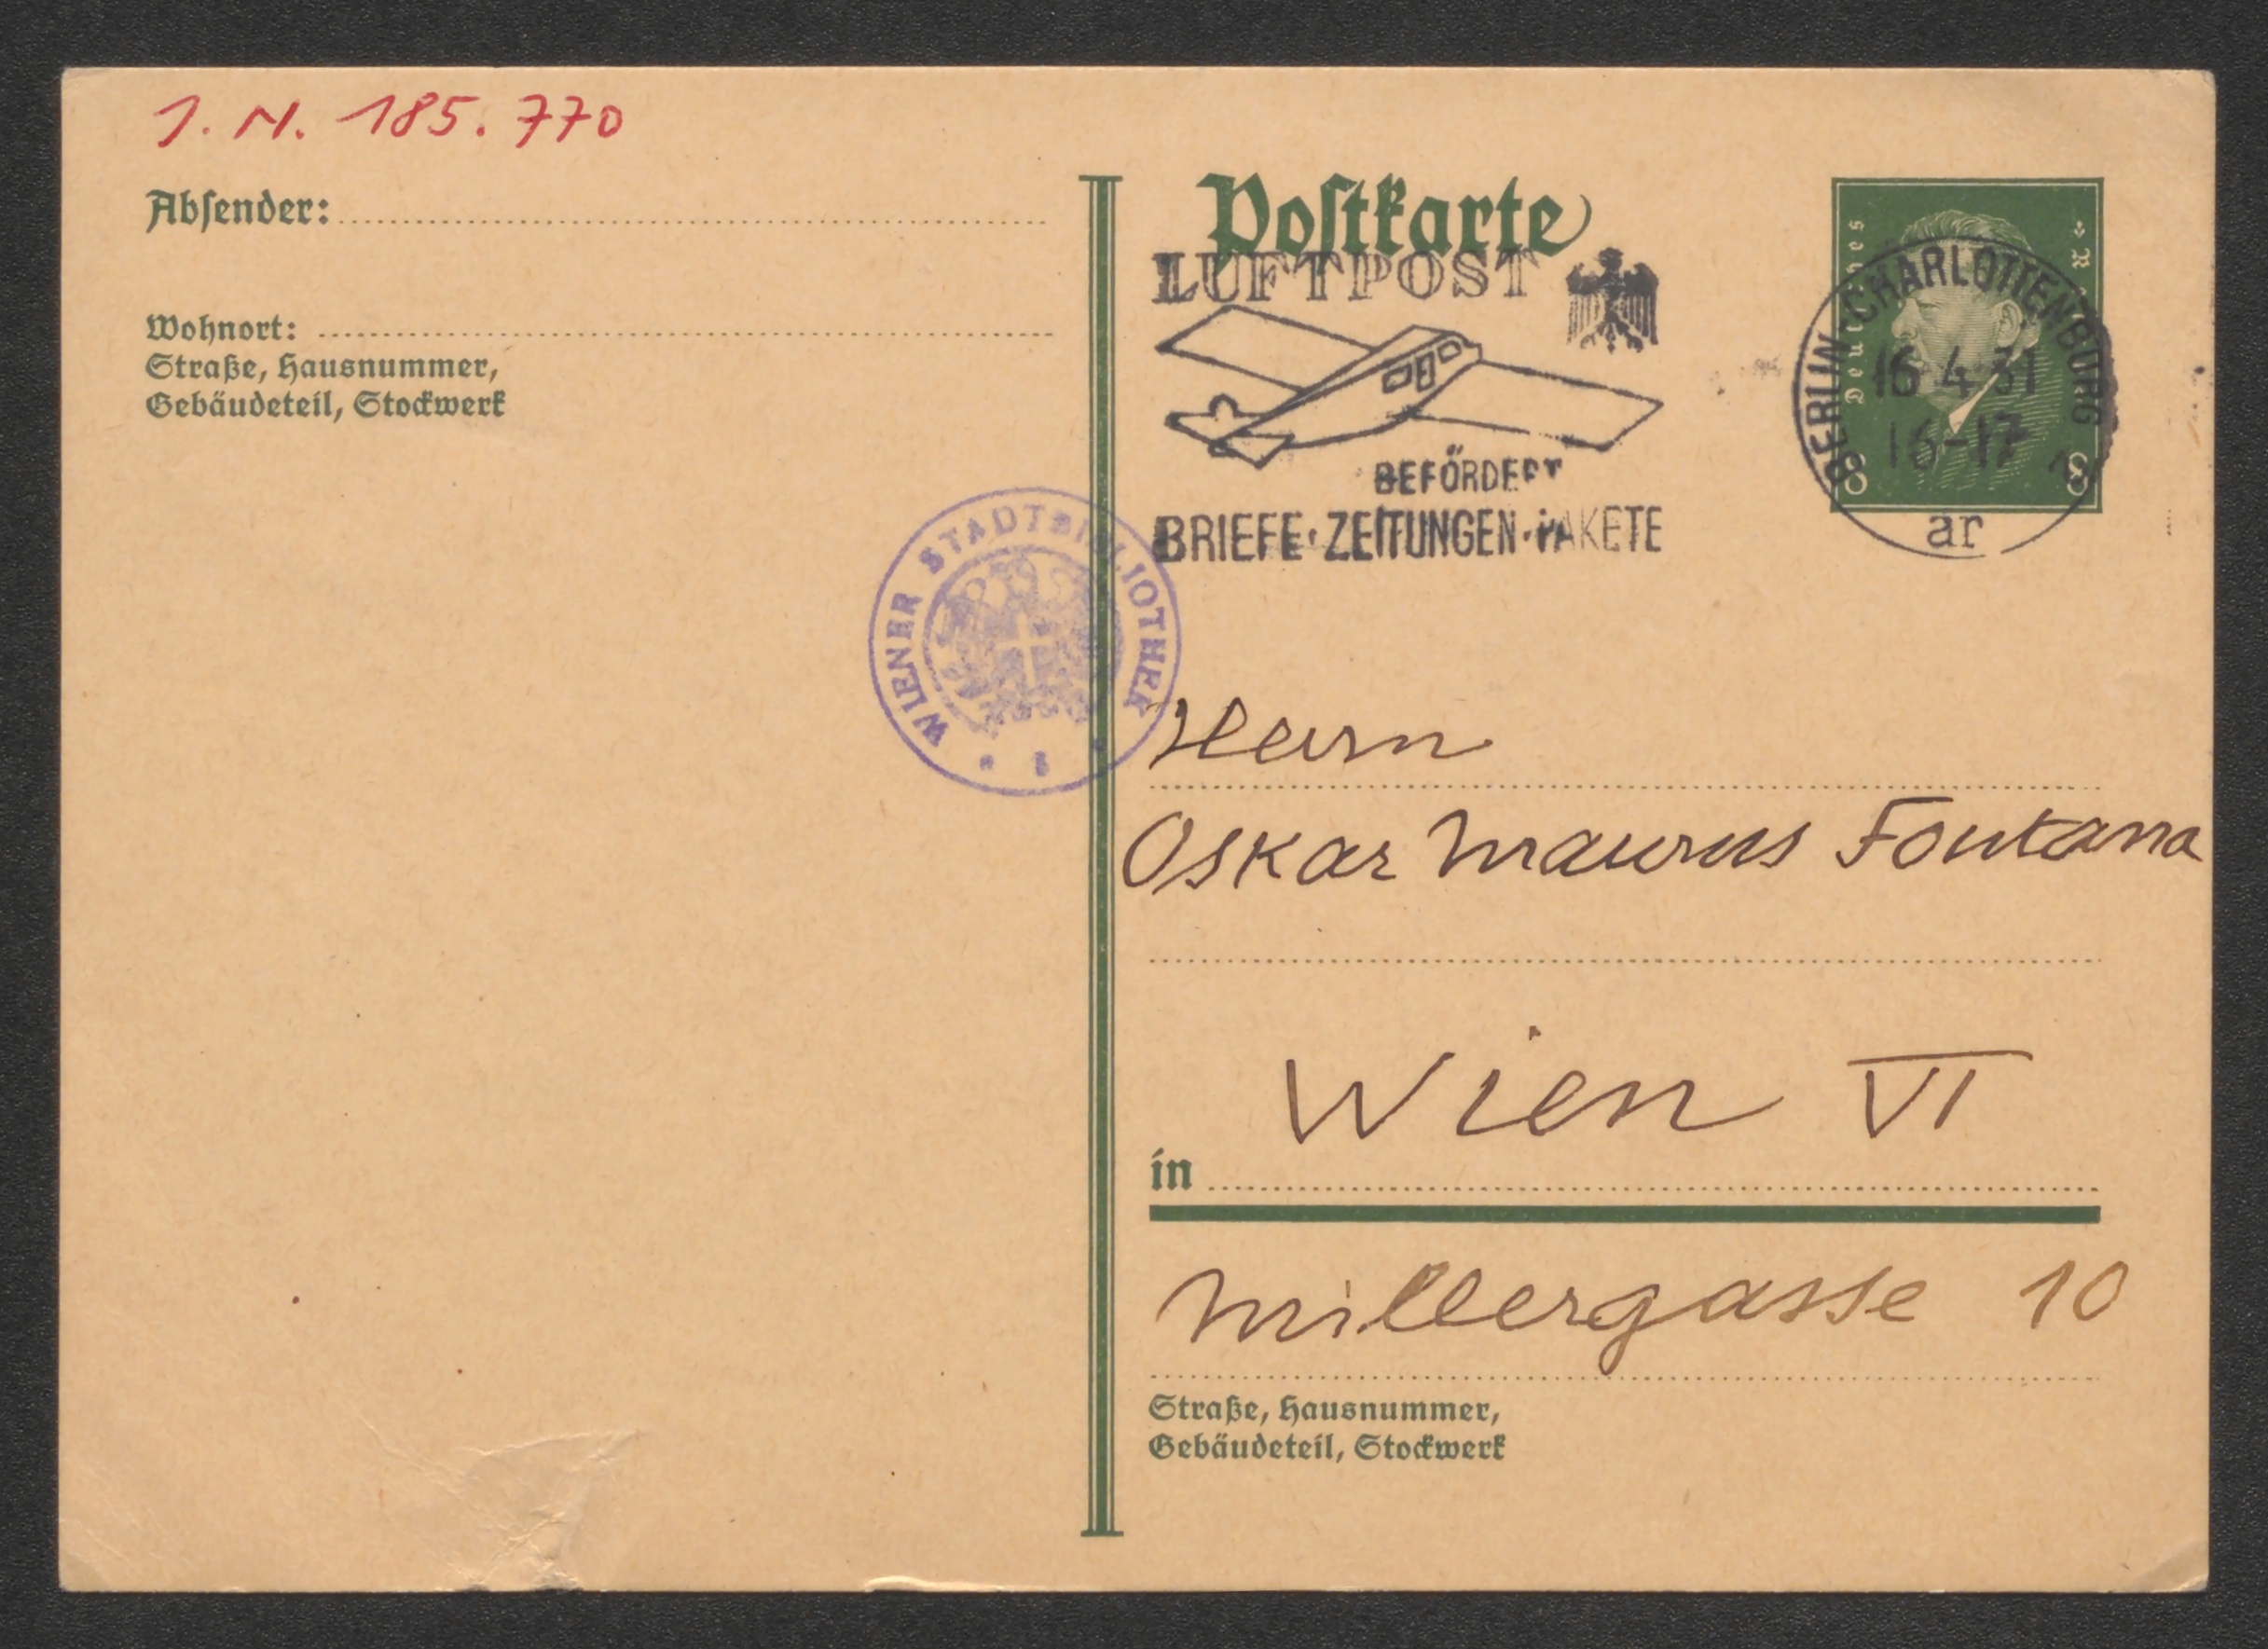 J. N. 185.770
Absender:
Wohnort:
Straße, Hausnummer,
Gebäudeteil, Stockwerk
WIENER STADTBIBLIOTHEK
1
Postkarte
LUFTPOST
BEFÖRDERT
BRIEFE·ZEITUNGEN·PAKETE
Deutsches
8 8
BERLIN-CHARLOTTENBURG
16 4 31
16-17
ar
Herrn
Oskar Maurus Fontana
Wien VI
in
Millergasse 10
Straße, Hausnummer,
Gebäudeteil, Stockwerk